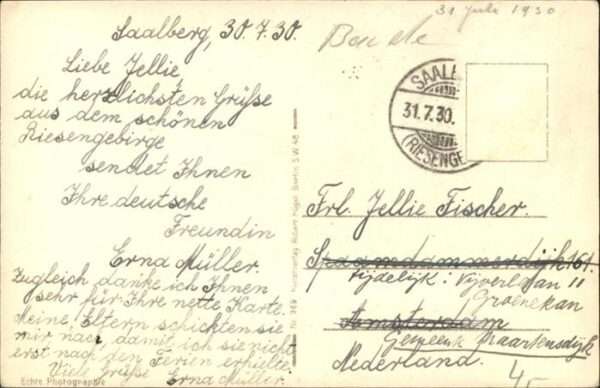 31 Juli 1930
Saalberg, 30.7.30.
Liebe Jellie,
die herzlichsten Grüße
aus dem schönen
Riesengebirge
sendet Ihnen
Ihre deutsche
Freundin
Erna Müller.
Zugleich danke ich Ihnen
sehr für Ihre nette Karte.
Meine Eltern schickten sie
mir nach, damit ich sie nicht
erst nach den Ferien erhielte.
Viele Grüße Erna Müller.
Echte Photographie
SAALB
31.7.30.
(RIESENGE
Frl. Jellie Fischer.
Spaarndammerdijk 161.
tijdelijk: Vijverlaan 11
Groenekan
Amsterdam
Gemeente Maartensdijk
Nederland.
4,-